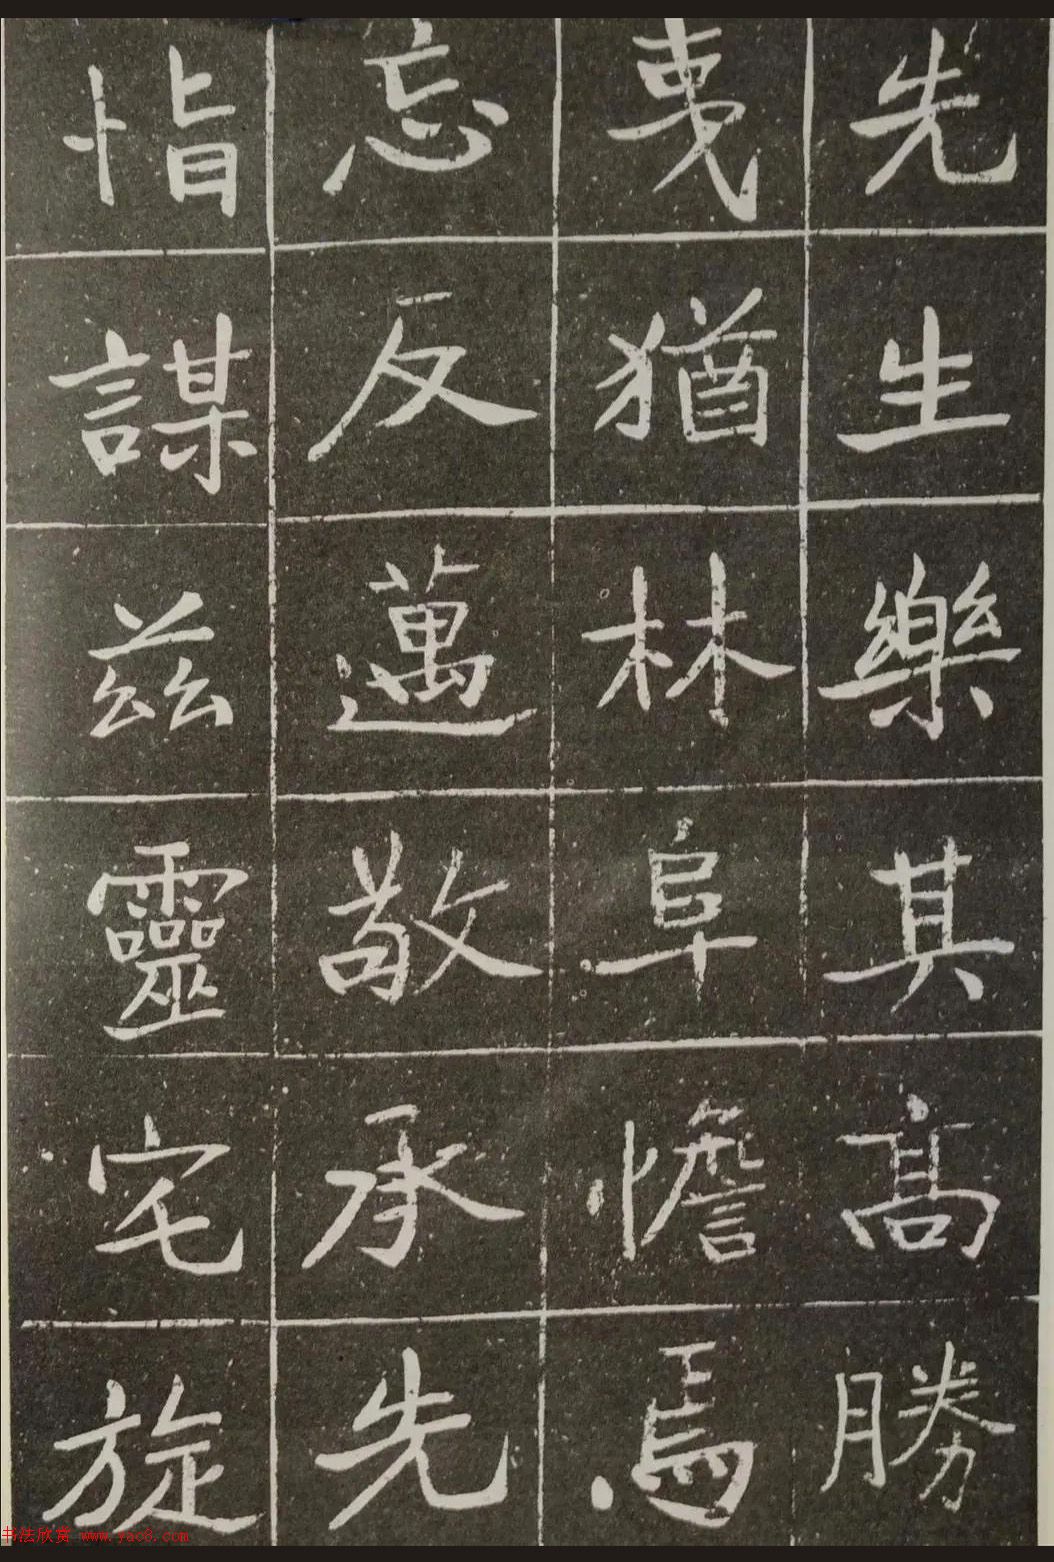 先生樂其高勝
夷猶林阜憺焉
忘反邁敬承先
恉謀兹靈宅旋
书法欣赏 www.yac8.com